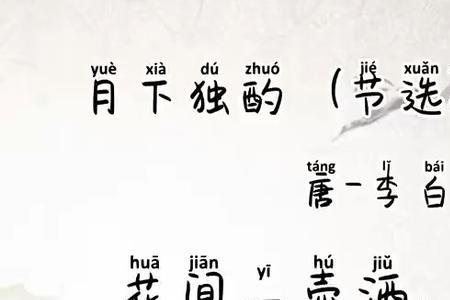 yuè xià dú zhuó jié xuǎn
月下独酌（节选
táng lǐ bái
唐－李白
huā jiān yī hú jiǔ
花间一壶酒